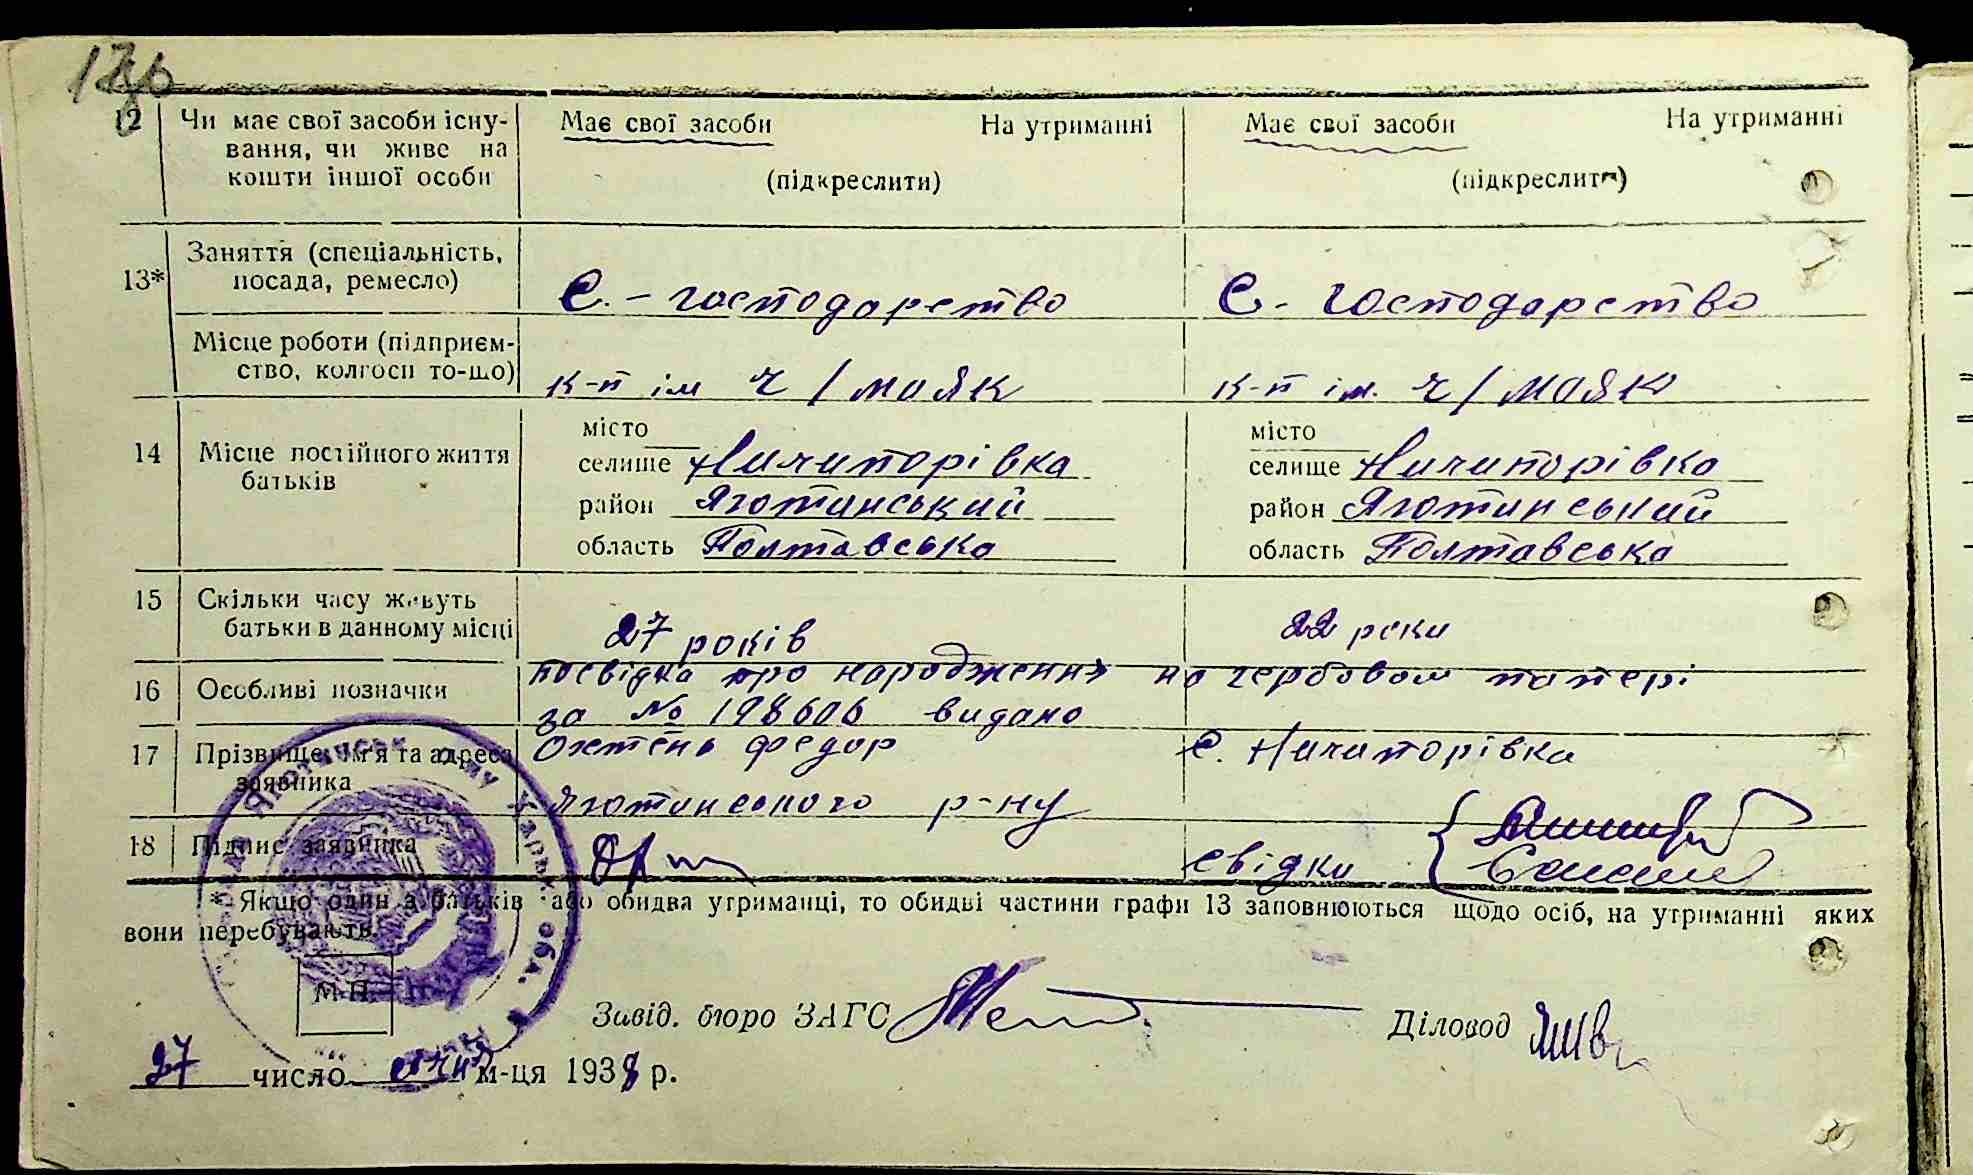 12 Чи має свої засоби існу- Має свої засоби На утриманні Має свої засоби На утриманні
вання, чи живе на
кошти іншої особи (підкреслити) (підкреслити)
13* Заняття (спеціальність,
посада, ремесло) С. - господарство С. - господарство
Місце роботи (підприєм-
ство, колгосп то-що) к-п ім Ч / маяк к-п ім. Ч / маяк
місто місто
14 Місце постійного життя селище Ничипорівка селище Ничипорівка
батьків
район Яготинський район Яготинський
область Полтавська область Полтавська
15 Скільки часу живуть
батьки в данному місці 27 років 22 роки
16 Особливі позначки посвідка про народження на гербовом папері
за № 198606 видано
17 Прізвище, ім'я та адреса Федор С. Ничипорівка
заявника
Яготинського р-ну
18 Підпис заявника свідки
* Якщо один з батьків або обидва утриманці, то обидві частини графи 13 заповнюються щодо осіб, на утриманні яких
вони перебувають.
М.П.
Завід. бюро ЗАГС Діловод
27 число січня м-ця 1938 р.